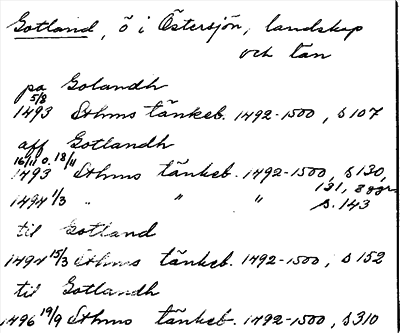 Gotland, ö i Östersjön, landskap
och län
pa Golandh
5/8
1493 Sthms tänkeb. 1492-1500, s 107
aff Gotlandh
16/11 o. 18/11
1493 Sthms tänkeb. 1492-1500, s 130,
131, 2 ggr
1494 1/3 " " " s. 143
til Gotland
1494 15/3 Sthms tänkeb. 1492-1500, s 152
til Gotlandh
1496 19/9 Sthms tänkeb. 1492-1500, s 310